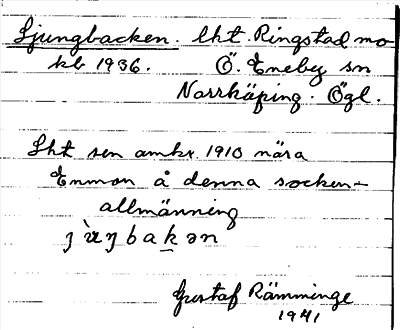 Ljungbacken. lht. Ringstad mo
kb 1936. Ö. Eneby sn
Norrköping. Ögl.
Lht sen omkr. 1910 nära
Enmon å denna socken-
allmänning
jùŋbakən
Gustaf Rämminge
1941